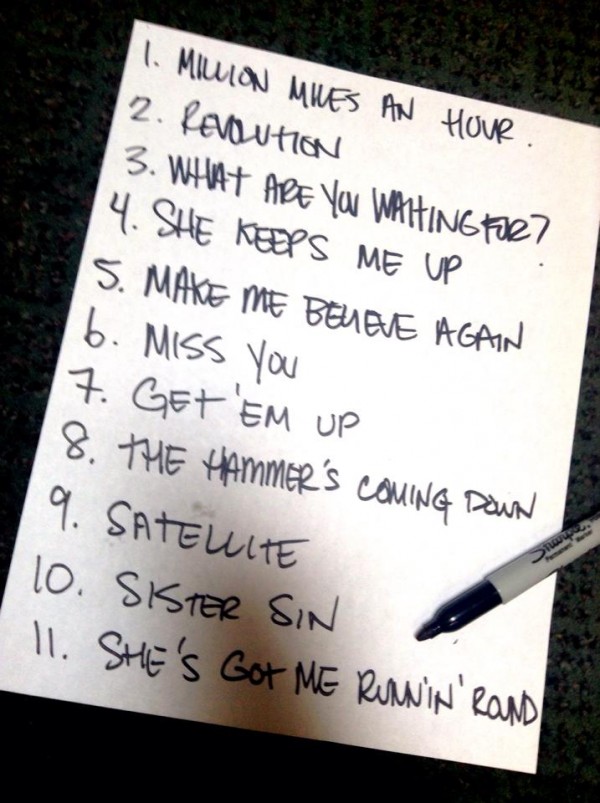 1. MILLION MILES AN HOUR.
2. REVOLUTION
3. WHAT ARE YOU WAITING FOR?
4. SHE KEEPS ME UP
5. MAKE ME BELIEVE AGAIN
6. MISS YOU
7. GET 'EM UP
8. THE HAMMER'S COMING DOWN
9. SATELLITE
10. SISTER SIN
11. SHE'S GOT ME RUNN'IN' ROUND
Sharpie
Permanent Marker